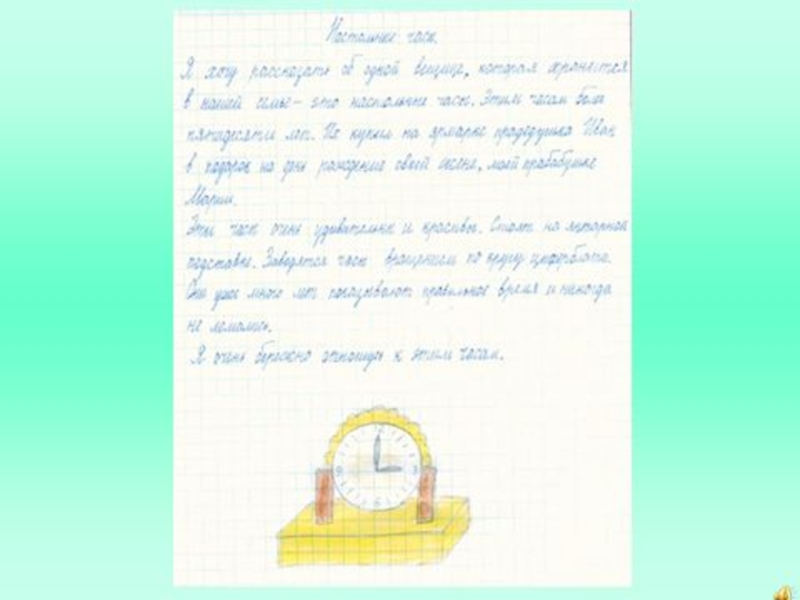 Настольные часы.
Я хочу рассказать об одной вещице, которая хранится
в нашей семье - это настольные часы. Этим часам более
пятидесяти лет. Их купил на ярмарке прадедушка Иван
в подарок на день рождение своей жене, моей прабабушке
Марии.
Эти часы очень удивительные и красивы. Стоят на янтарной
подставке. Заводятся часы вращением по кругу циферблата.
Они уже много лет показывают правильное время и никогда
не ломались.
Я очень бережно отношусь к этим часам.
12